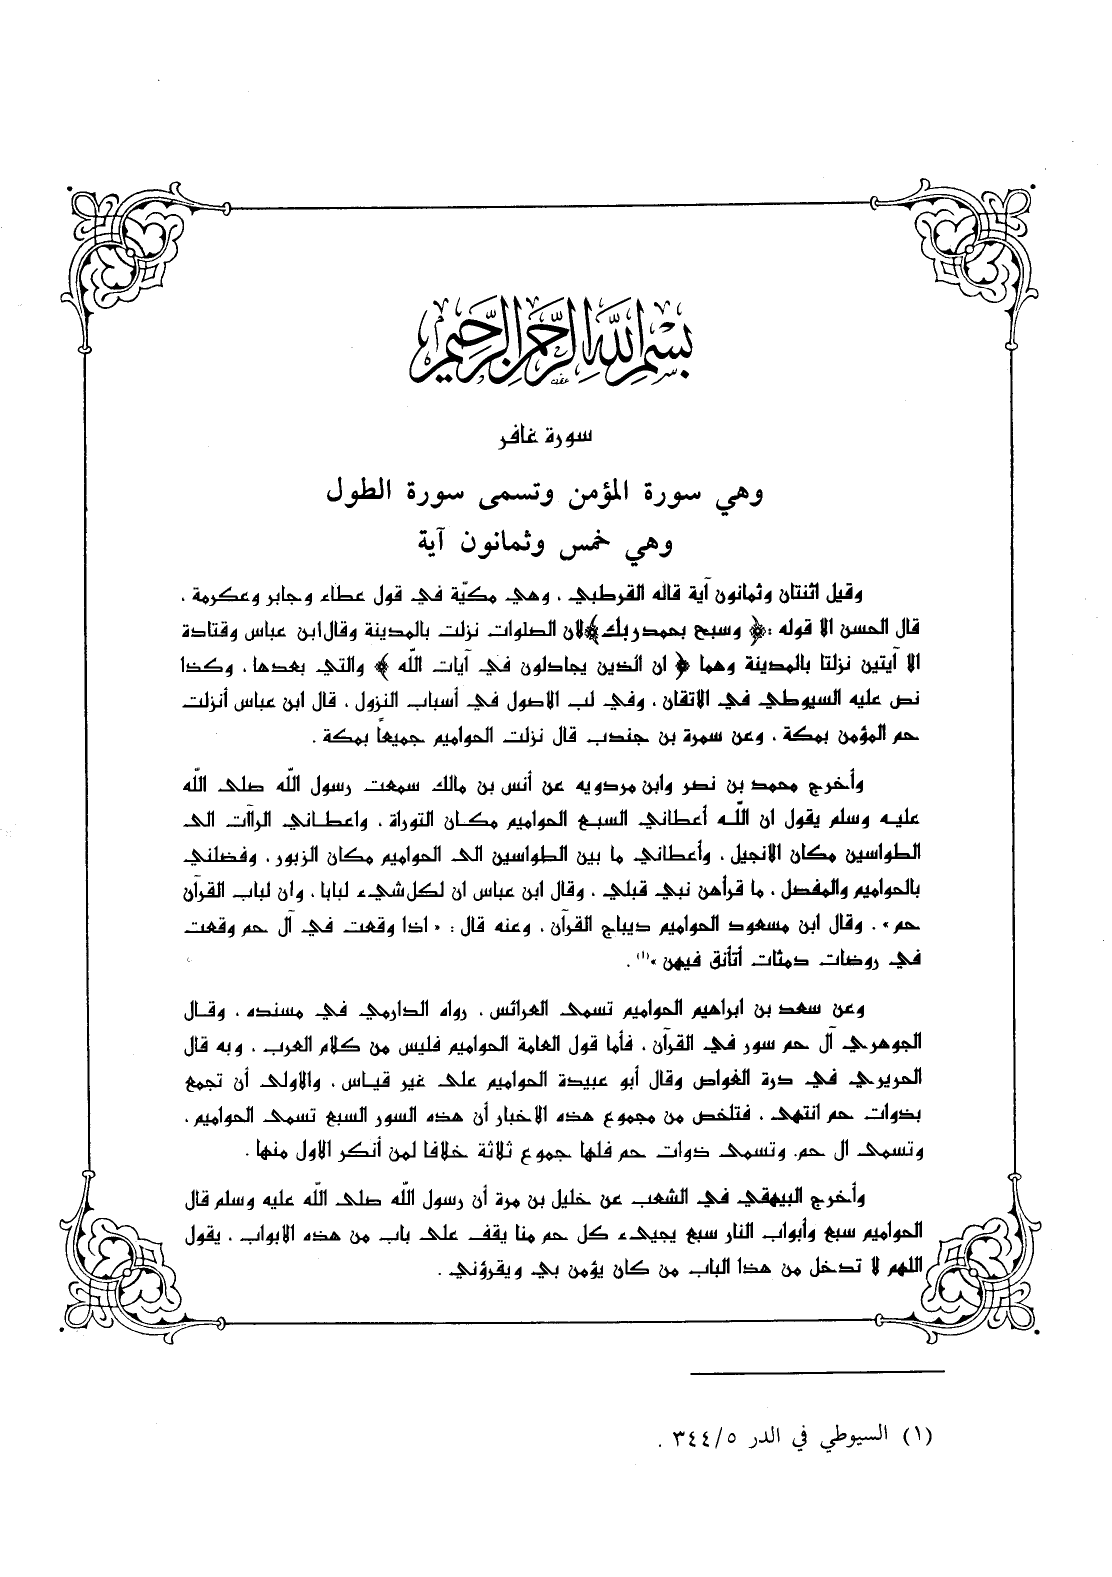 بسم الله الرحمن الرحيم
سورة غافر
وهي سورة المؤمن وتسمى سورة الطول
وهي خمس وثمانون آية
وقيل اثنتان وثمانون آية قاله القرطبي ، وهي مكيّة في قول عطاء وجابر وعكرمة ،
قال الحسن الا قوله : ﴿ وسبح بحمد ربك ﴾ لان الصلوات نزلت بالمدينة وقال ابن عباس وقتادة
الا آيتين نزلتا بالمدينة وهما ﴿ ان الذين يجادلون في آيات الله ﴾ والتي بعدها ، وكذا
نص عليه السيوطي في الاتقان ، وفي لب الاصول في أسباب النزول ، قال ابن عباس أنزلت
حم المؤمن بمكة ، وعن سمرة بن جندب قال نزلت الحواميم جميعاً بمكة .
وأخرج محمد بن نصر وابن مردويه عن أنس بن مالك سمعت رسول الله صلى الله
عليه وسلم يقول ان الله أعطاني السبع الحواميم مكان التوراة ، واعطاني الراآت الى
الطواسين مكان الانجيل ، وأعطاني ما بين الطواسين الى الحواميم مكان الزبور ، وفضلني
بالحواميم والمفصل ، ما قرأهن نبي قبلي ، وقال ابن عباس ان لكل شيء لبابا ، وان لباب القرآن
حم » . وقال ابن مسعود الحواميم ديباج القرآن ، وعنه قال : « اذا وقعت في آل حم وقعت
في روضات دمثات أتأنق فيهن »(١) .
وعن سعد بن ابراهيم الحواميم تسمى العرائس ، رواه الدارمي في مسنده ، وقال
الجوهري آل حم سور في القرآن ، فأما قول العامة الحواميم فليس من كلام العرب ، وبه قال
الحريري في درة الغواص وقال أبو عبيدة الحواميم على غير قياس ، والاولى أن تجمع
بذوات حم انتهى ، فتلخص من مجموع هذه الاخبار أن هذه السور السبع تسمى الحواميم ،
وتسمى ال حم. وتسمى ذوات حم فلها جموع ثلاثة خلافا لمن أنكر الاول منها .
وأخرج البيهقي في الشعب عن خليل بن مرة أن رسول الله صلى الله عليه وسلم قال
الحواميم سبع وأبواب النار سبع يجيء كل حم منا يقف على باب من هذه الابواب ، يقول
اللهم لا تدخل من هذا الباب من كان يؤمن بي ويقرؤني .
(١) السيوطي في الدر ٥/٣٤٤ .